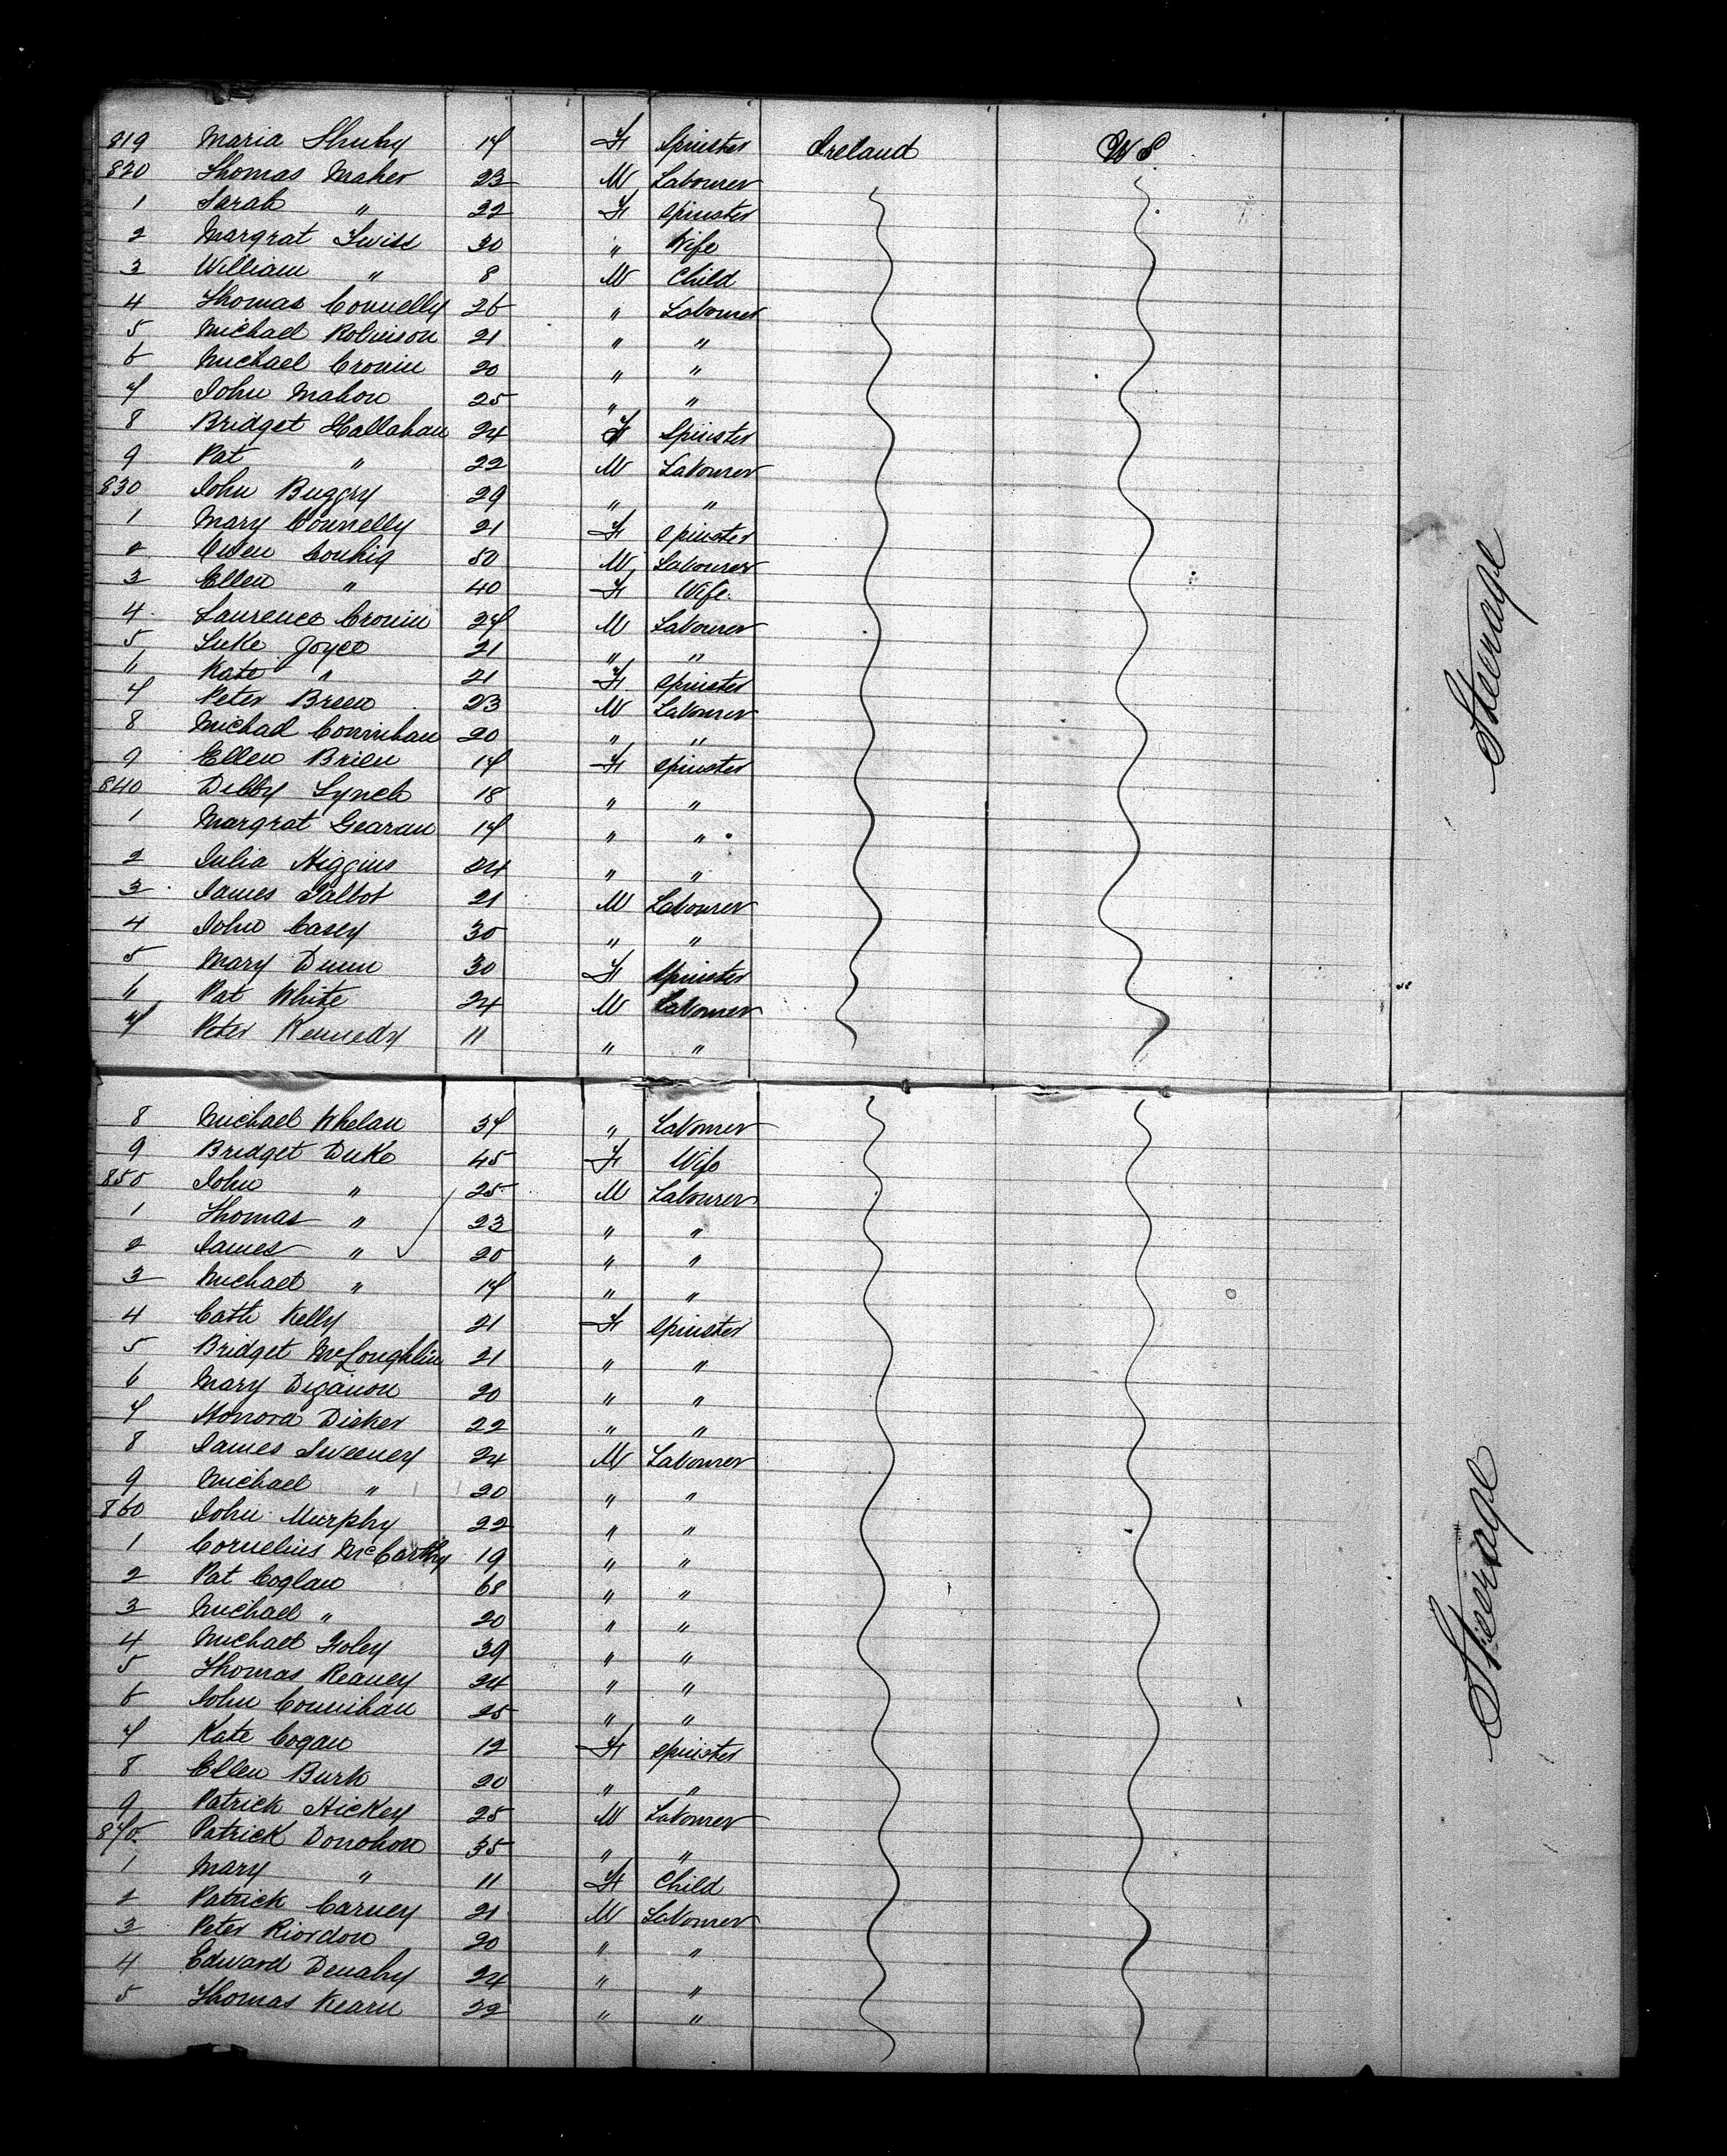 819 Maria Shuhy 17 F Spinster Ireland U S
820 Thomas Maher 23 M Labourer
1 Sarah " 22 F Spinster
2 Margrat Twiss 30 " Wife
3 William " 8 M Child
4 Thomas Connelly 26 " Labourer
5 Michael Robinson 21 " "
6 Michael Cronin 20 " "
7 John Mahon 25 " "
8 Bridget Hallahan 24 F Spinster
9 Pat " 22 M Labourer
830 John Buggy 29 " "
1 Mary Connelly 21 F Spinster
2 Owen Couhig 50 M Labourer
3 Ellen " 40 F Wife
4 Laurence Cronin 27 M Labourer
5 Luke Joyce 21 " "
6 Kate " 21 F Spinster
7 Peter Breen 23 M Labourer
8 Michael Counihan 20 " "
9 Ellen Brien 17 F Spinster
840 Debby Lynch 18 " "
1 Margrat Gearan 17 " "
2 Julia Higgins 24 " "
3 James Talbot 21 M Labourer
4 John Casey 30 " "
5 Mary Dunn 30 F Spinster
6 Pat White 24 M Labourer
7 Peter Kennedy 11 " "
Steerage
8 Michael Whelan 37 " Labourer
9 Bridget Duke 45 F Wife
850 John " 25 M Labourer
1 Thomas " 23 " "
2 James " 20 " "
3 Michael " 17 " "
4 Cath Kelly 21 F Spinster
5 Bridget McLoughlin 21 " "
6 Mary Deganon 20 " "
7 Honora Dicker 22 " "
8 James Sweeney 24 M Labourer
9 Michael " 20 " "
860 John Murphy 22 " "
1 Cornelius McCarthy 19 " "
2 Pat Coglan 68 " "
3 Michael " 20 " "
4 Michael Foley 39 " "
5 Thomas Reaney 24 " "
6 John Counihan 25 " "
7 Kate Cogan 12 F Spinster
8 Ellen Burk 20 " "
9 Patrick Hickey 25 M Labourer
870 Patrick Donohon 35 " "
1 Mary " 11 F Child
2 Patrick Carney 21 M Labourer
3 Peter Riordon 20 " "
4 Edward Denahy 24 " "
5 Thomas Kearn 22 " "
Steerage